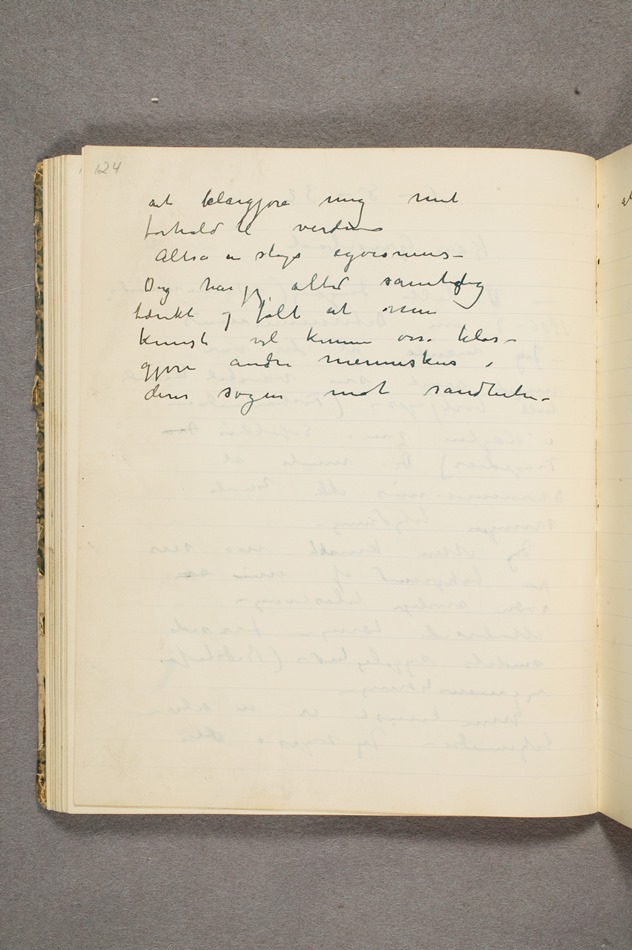 124
at klargjøre mig mit
forhold til verden
Altså en slags egoismus –
Dog har jeg altid samtidig
tænkt og følt at min
kunst vil kunne også klar-
gjøre andre menneskers i
deres søgen mot sandheden –